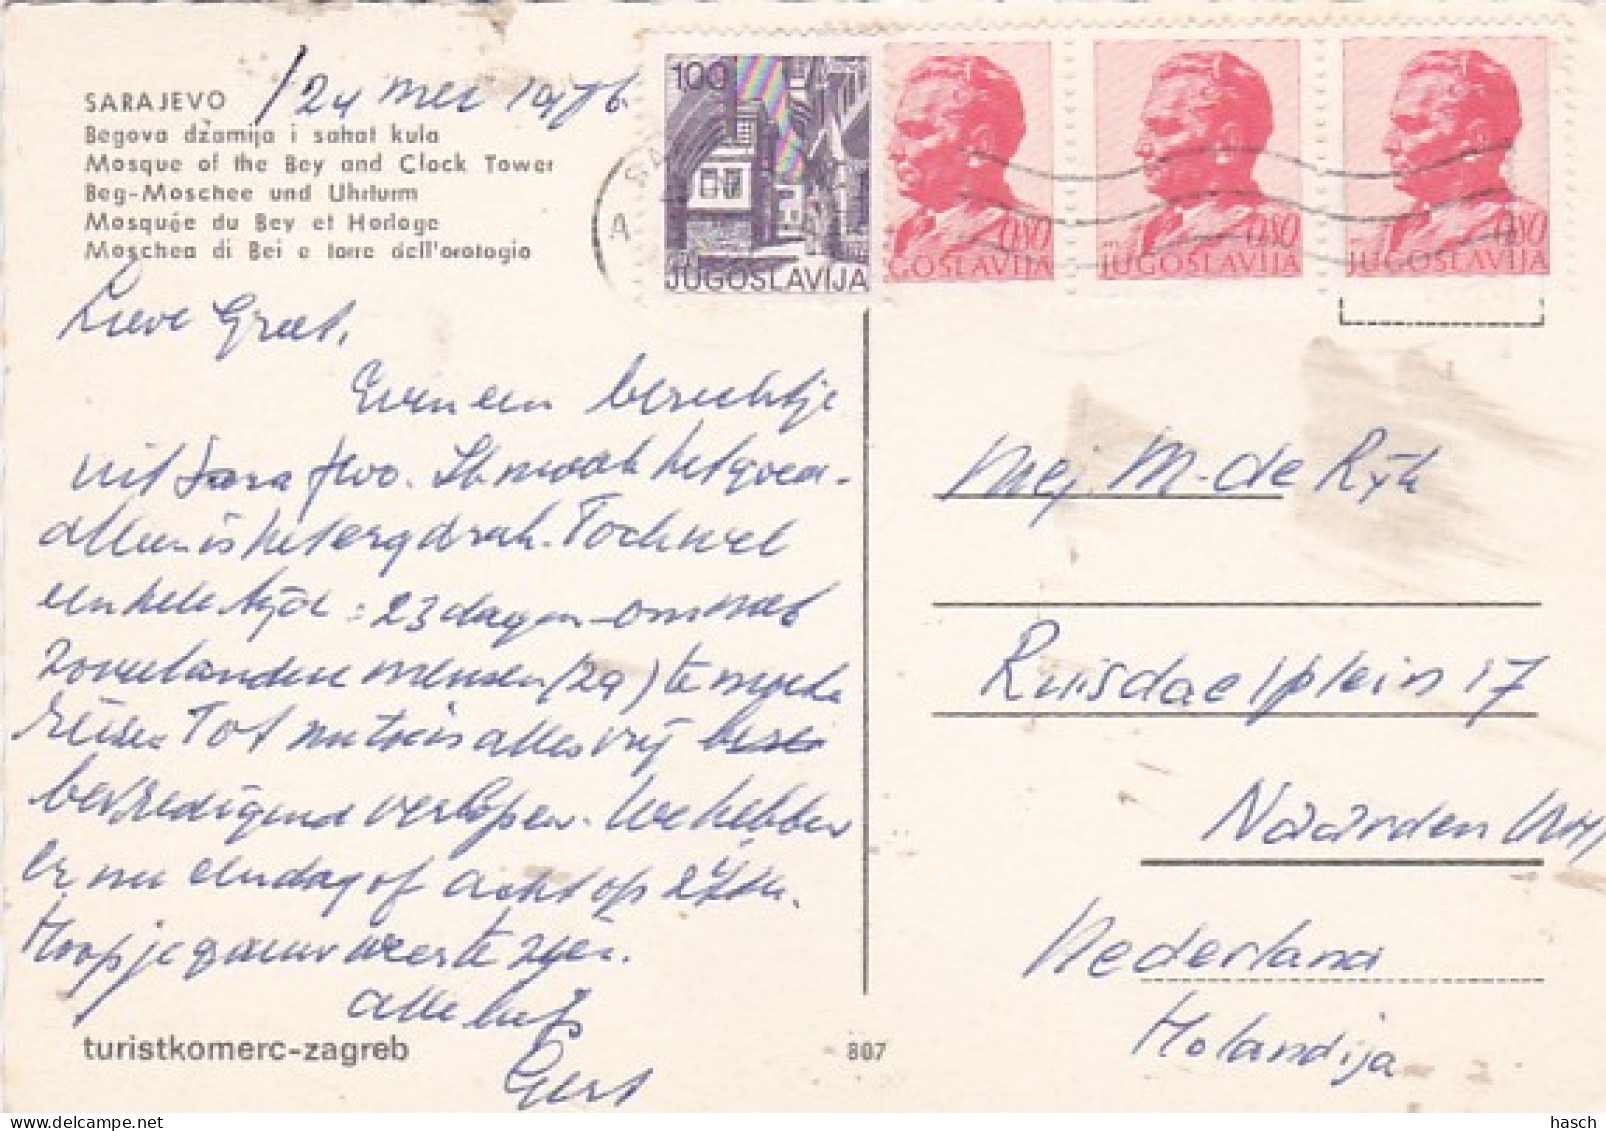 SARAJEVO / 24 mei 1976
Begova džamija i sahat kula
Mosque of the Bey and Clock Tower
Beg-Moschee und Uhrturm
Mosquée du Bey et Horloge
Moschea di Bei e torre dell'orologio
100
JUGOSLAVIJA
0,80
GOSLAVIJA
0,80
JUGOSLAVIJA
0,80
JUGOSLAVIJA
Lieve Greet,
Even een berichtje
uit Sarajevo. Ik maak het goed
alleen is het erg druk. Toch wel
een hele tijd : 23 dagen om met
zoveel andere mensen (29) te moeten
reizen Tot nu toe is alles vrij
bevredigend verlopen. We hebben
er nu een dag of acht op zitten.
Hoop je gauw weer te zien.
alle liefs
Gert
turistkomerc-zagreb
807
Mej. M. de Rijk
Ruisdaelplein 17
Naarden (NH)
Nederland
Holandija